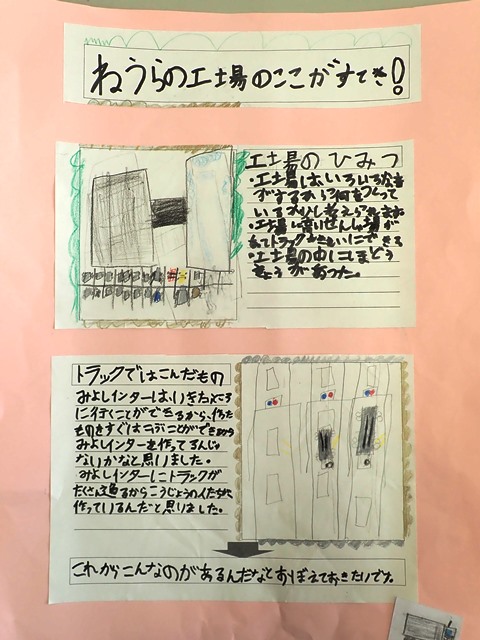 ねうらの工場のここがすてき!
工場のひみつ
・工場は、いろいろな音
がするから何をつくって
いるか少し考えられます
・工場に せんしゃ場が
あってトラックをきれいにできる
・工場の中にしまどう
きょうがあった。
トラックではこんだもの
みよしインターは、いきたいところ
に行くことができるから、作った
ものをすぐはこぶことができるから
みよしインターを作ってるんじゃ
ないかなと思いました。
みよしインターにトラックが
たくさん通るからこうじょうの人たちに
作っているんだと思いました。
これからこんなのがあるんだなとおぼえておきたいです。